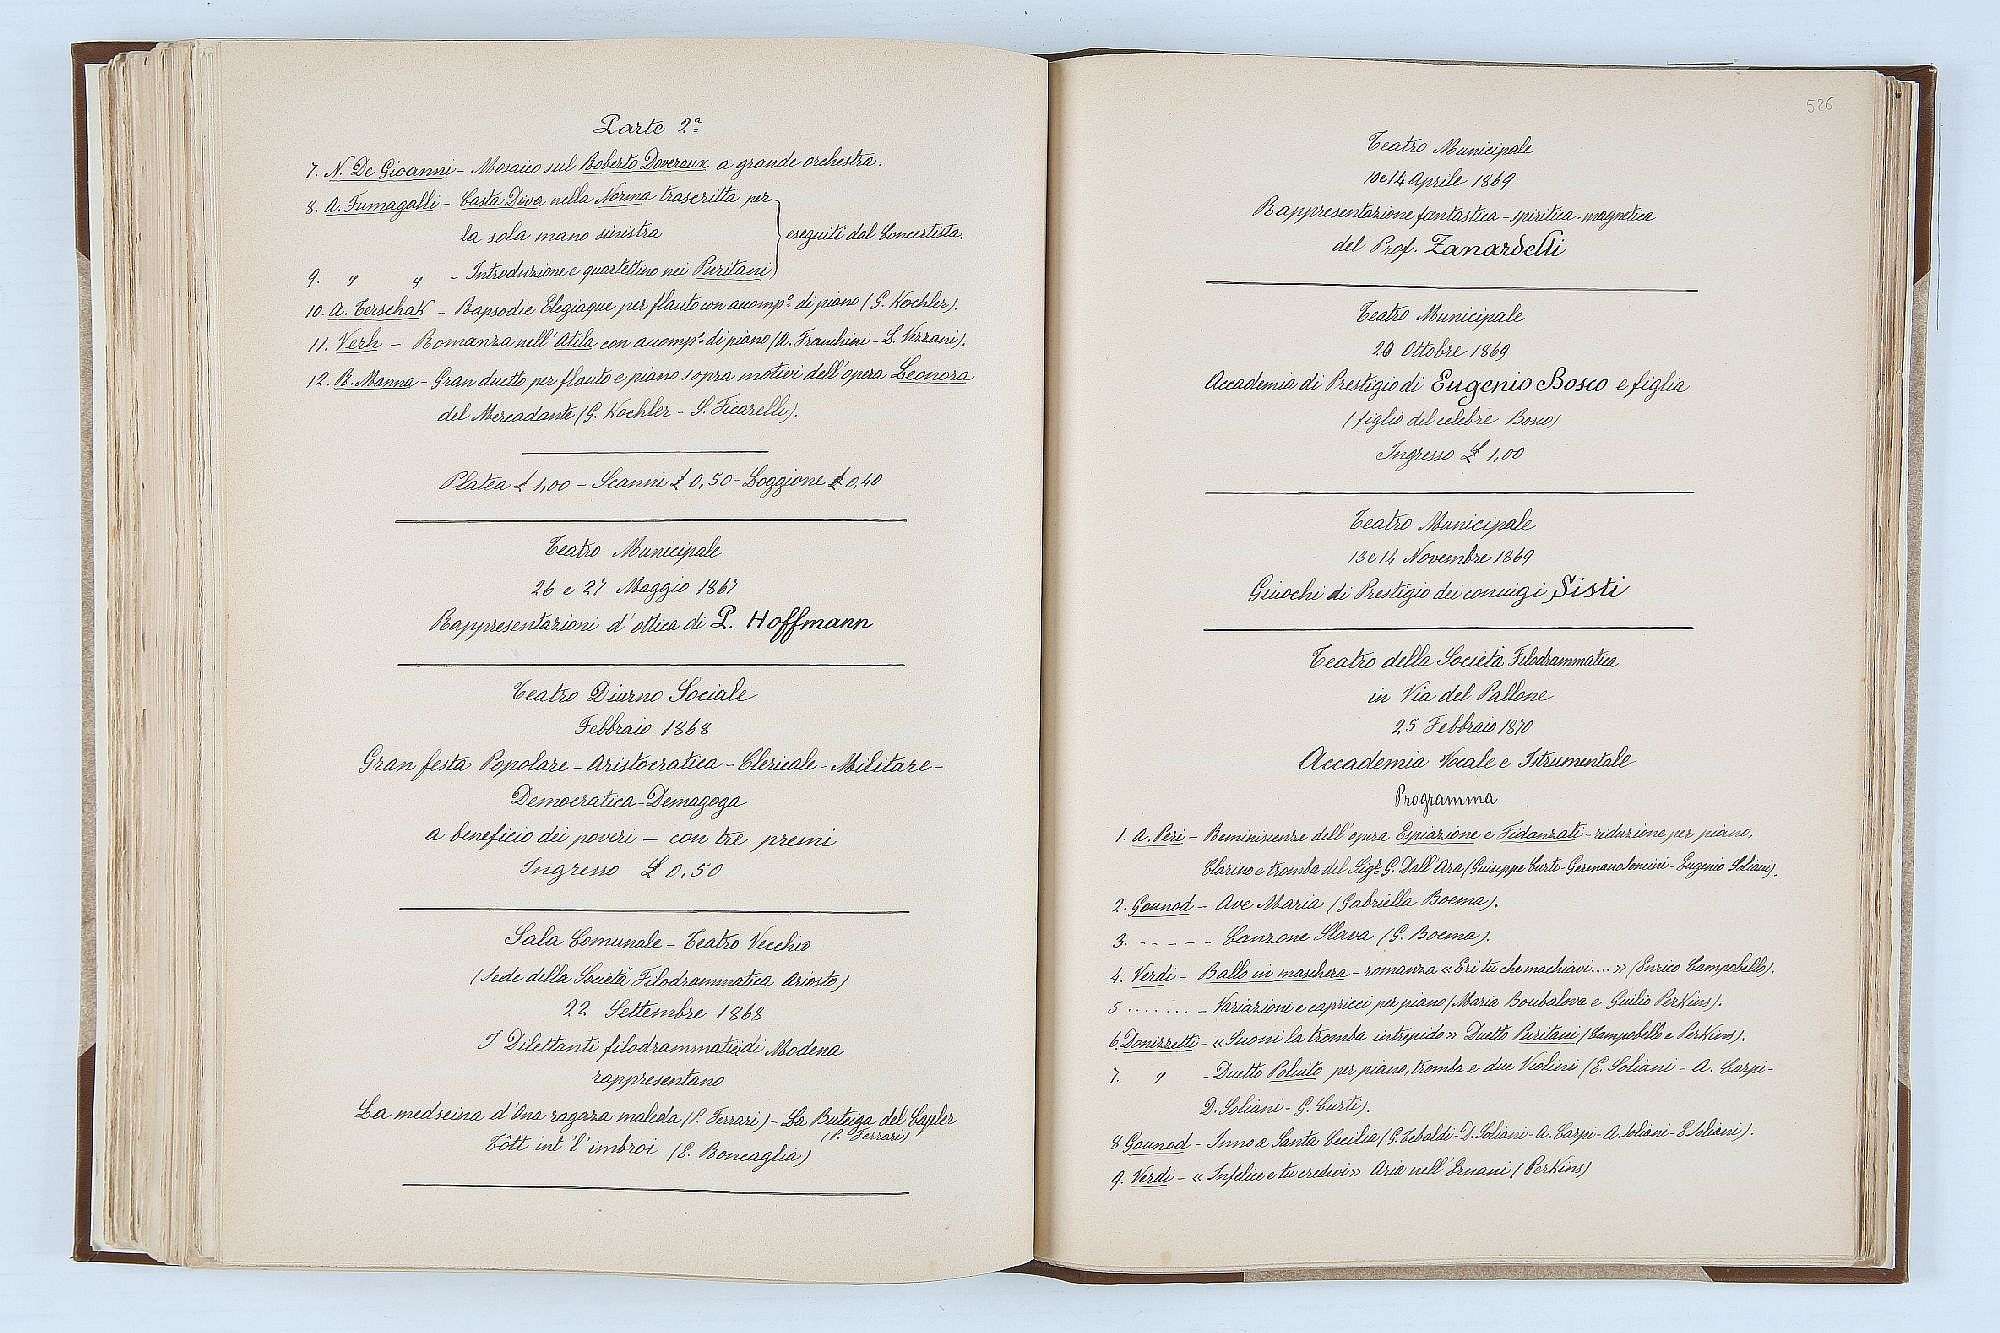 Parte 2ª
7. N. De Gioanni - Mosaico sul Roberto Dovereux a grande orchestra.
8. A. Fumagalli - Casta Diva nella Norma trascritta per
la sola mano sinistra
eseguiti dal Concertista.
9. " " - Introduzione e quartettino nei Puritani
10. A. Terschak - Rapsodie Elegiaque per flauto con accompº di piano (G. Kochler).
11. Verdi - Romanza nell'Atila con accompº di piano (A. Franchini - L. Vezzani).
12. R. Manna - Gran duetto per flauto e piano sopra motivi dell'opera Leonora
del Mercadante (G. Kochler - S. Ficarelli).
Platea £ 1,00 - Scanni £ 0,50 - Loggione £ 0,40
Teatro Municipale
26 e 27 Maggio 1867
Rappresentazioni d'ottica di P. Hoffmann
Teatro Diurno Sociale
Febbraio 1868
Gran festa Popolare - Aristocratica - Clericale - Militare -
Democratica - Demagoga
a beneficio dei poveri - con tre premi
Ingresso £ 0,50
Sala Comunale - Teatro Vecchio
(Sede della Società Filodrammatica Ariosto)
22 Settembre 1868
I Dilettanti filodrammatici di Modena
rappresentano
La medseina d'Ona ragazza maleda (P. Ferrari) - La Buteiga del Capler
(P. Ferrari)
Tôtt int'l'imbroi (E. Boncaglia)
526
Teatro Municipale
10 e 14 Aprile 1869
Rappresentazione fantastica - spiritica - magnetica
del Prof. Zanardelli
Teatro Municipale
20 Ottobre 1869
Accademia di Prestigio di Eugenio Bosco e figlia
(figlio del celebre Bosco)
Ingresso £ 1,00
Teatro Municipale
13 e 14 Novembre 1869
Giuochi di Prestigio dei coniugi Sisti
Teatro della Società Filodrammatica
in Via del Pallone
25 Febbraio 1870
Accademia Vocale e Istrumentale
Programma
1. A. Peri - Reminiscenze dell'opera Espiazione e Fidanzati - riduzione per piano,
Clarino e tromba del Sigr. G. Dall'Ara (Giuseppe Curti - Germano Soncini - Eugenio Soliani).
2. Gounod - Ave Maria (Gabriella Boema).
3. - - - - - Canzone Slava (G. Boema).
4. Verdi - Ballo in maschera - romanza «Eri tu che macchiavi....» (Enrico Campobello).
5 ....... - Variazioni e capricci per piano (Maria Boubalova e Giulio Perkins).
6. Donizzetti - «Suoni la tromba intrepido» Duetto Puritani (Campobello e Perkins).
7. " - Duetto Poliuto per piano, tromba e due Violini (E. Soliani - A. Curpi -
D. Soliani - G. Curti).
8 Gounod - Inno a Santa Cecilia (G. Tebaldi - D. Soliani - A. Carpi - A. Soliani - E. Soliani).
9. Verdi - «Infelice e tu credevi» Aria nell'Ernani (Perkins)